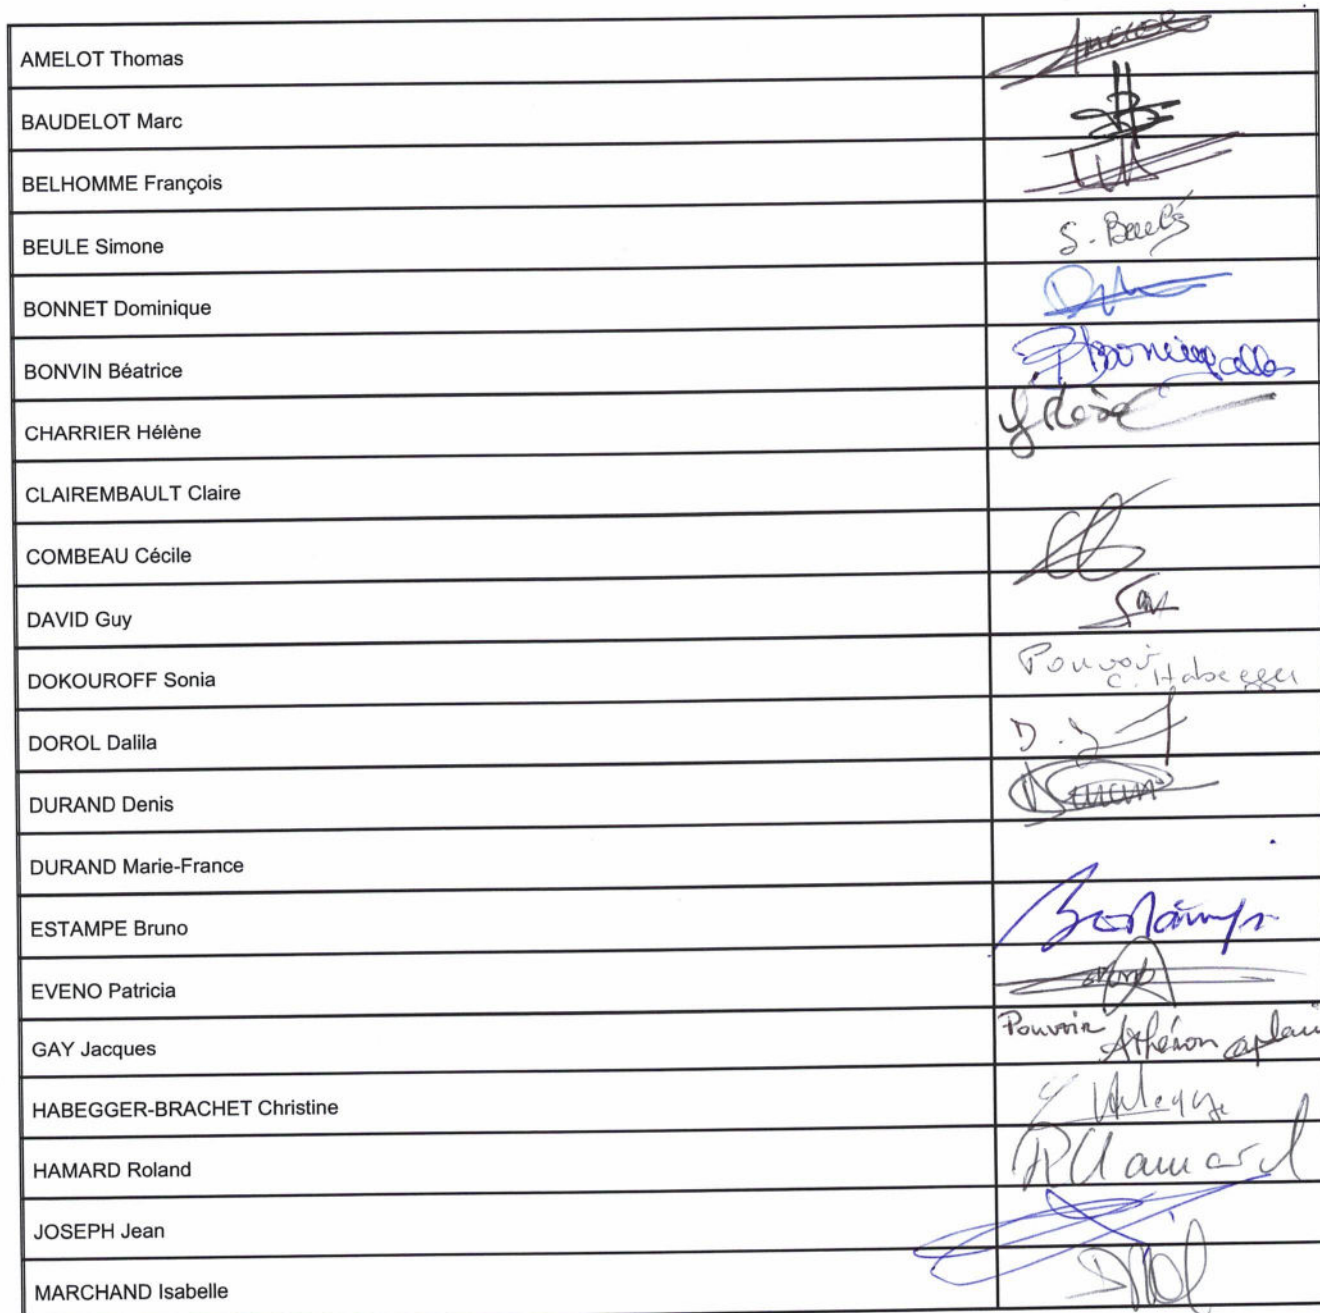 AMELOT Thomas
BAUDELOT Marc
BELHOMME François
BEULE Simone
S. Beulé
BONNET Dominique
BONVIN Béatrice
CHARRIER Hélène
CLAIREMBAULT Claire
COMBEAU Cécile
DAVID Guy
DOKOUROFF Sonia
Pouvoir
C. Habegger
DOROL Dalila
DURAND Denis
DURAND Marie-France
ESTAMPE Bruno
EVENO Patricia
GAY Jacques
Pouvoir
HABEGGER-BRACHET Christine
HAMARD Roland
RHamard
JOSEPH Jean
MARCHAND Isabelle